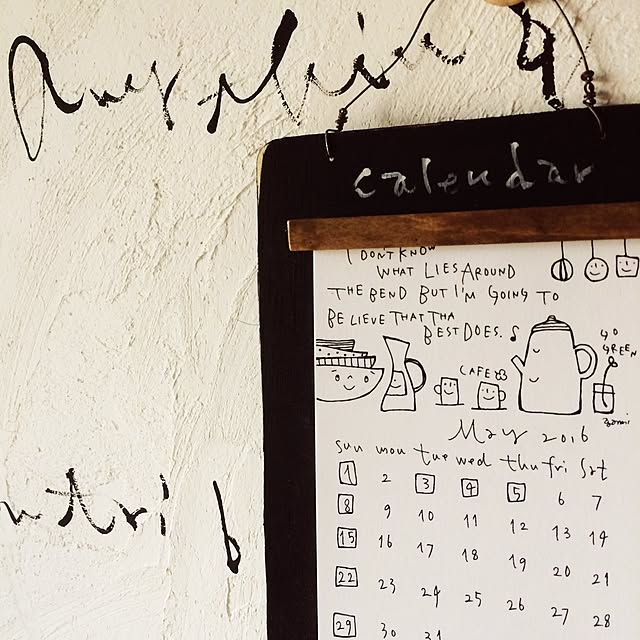 calendar
I DON'T KNOW
WHAT LIES AROUND
THE BEND BUT I'M GOING TO
BELIEVE THAT THA
BEST DOES.
GO
GREEN
CAFE
May 2016
sun mon tue wed thu fri sat
1 2 3 4 5 6 7
8 9 10 11 12 13 14
15 16 17 18 19 20 21
22 23 24 25 26 27 28
29 30 31